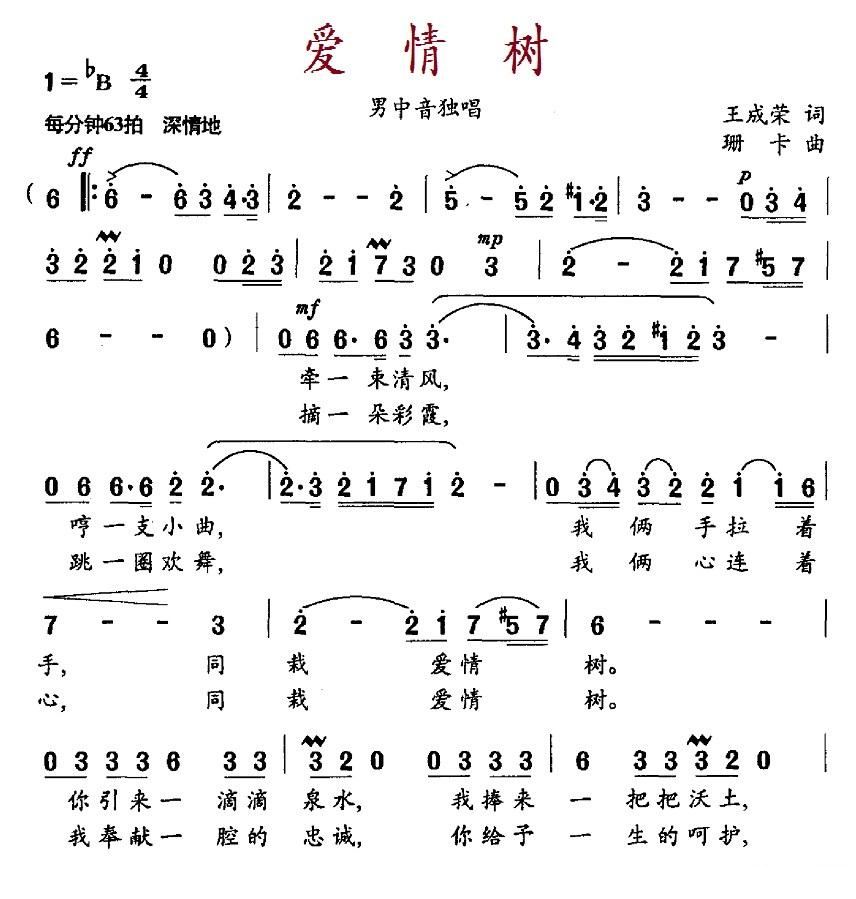 爱情树
1=♭B 4/4
男中音独唱
每分钟63拍 深情地
王成荣 词
珊卡 曲
ff
p
( 6 ‖: 6 - 6 3 4·3 | 2 - - 2 | 5 - 5 2 #1·2 | 3 - - 0 3 4 |
mp
3 2 2 1 0 0 2 3 | 2 1 7 3 0 3 | 2 - 2 1 7 #5 7 |
mf
6 - - 0 ) | 0 6 6· 6 3 3· | 3· 4 3 2 #1 2 3 - |
牵一束清风,
摘一朵彩霞,
0 6 6·6 2 2· | 2·3 2 1 7 1 2 - | 0 3 4 3 2 2 1 1 6 |
哼一支小曲, 我俩手拉着
跳一圈欢舞, 我俩心连着
7 - - 3 | 2 - 2 1 7 #5 7 | 6 - - - |
手, 同栽爱情树。
心, 同栽爱情树。
0 3 3 3 3 6 3 3 | 3 2 0 0 3 3 3 | 6 3 3 3 2 0 |
你引来一滴滴泉水, 我捧来一把把沃土,
我奉献一腔的忠诚, 你给予一生的呵护,